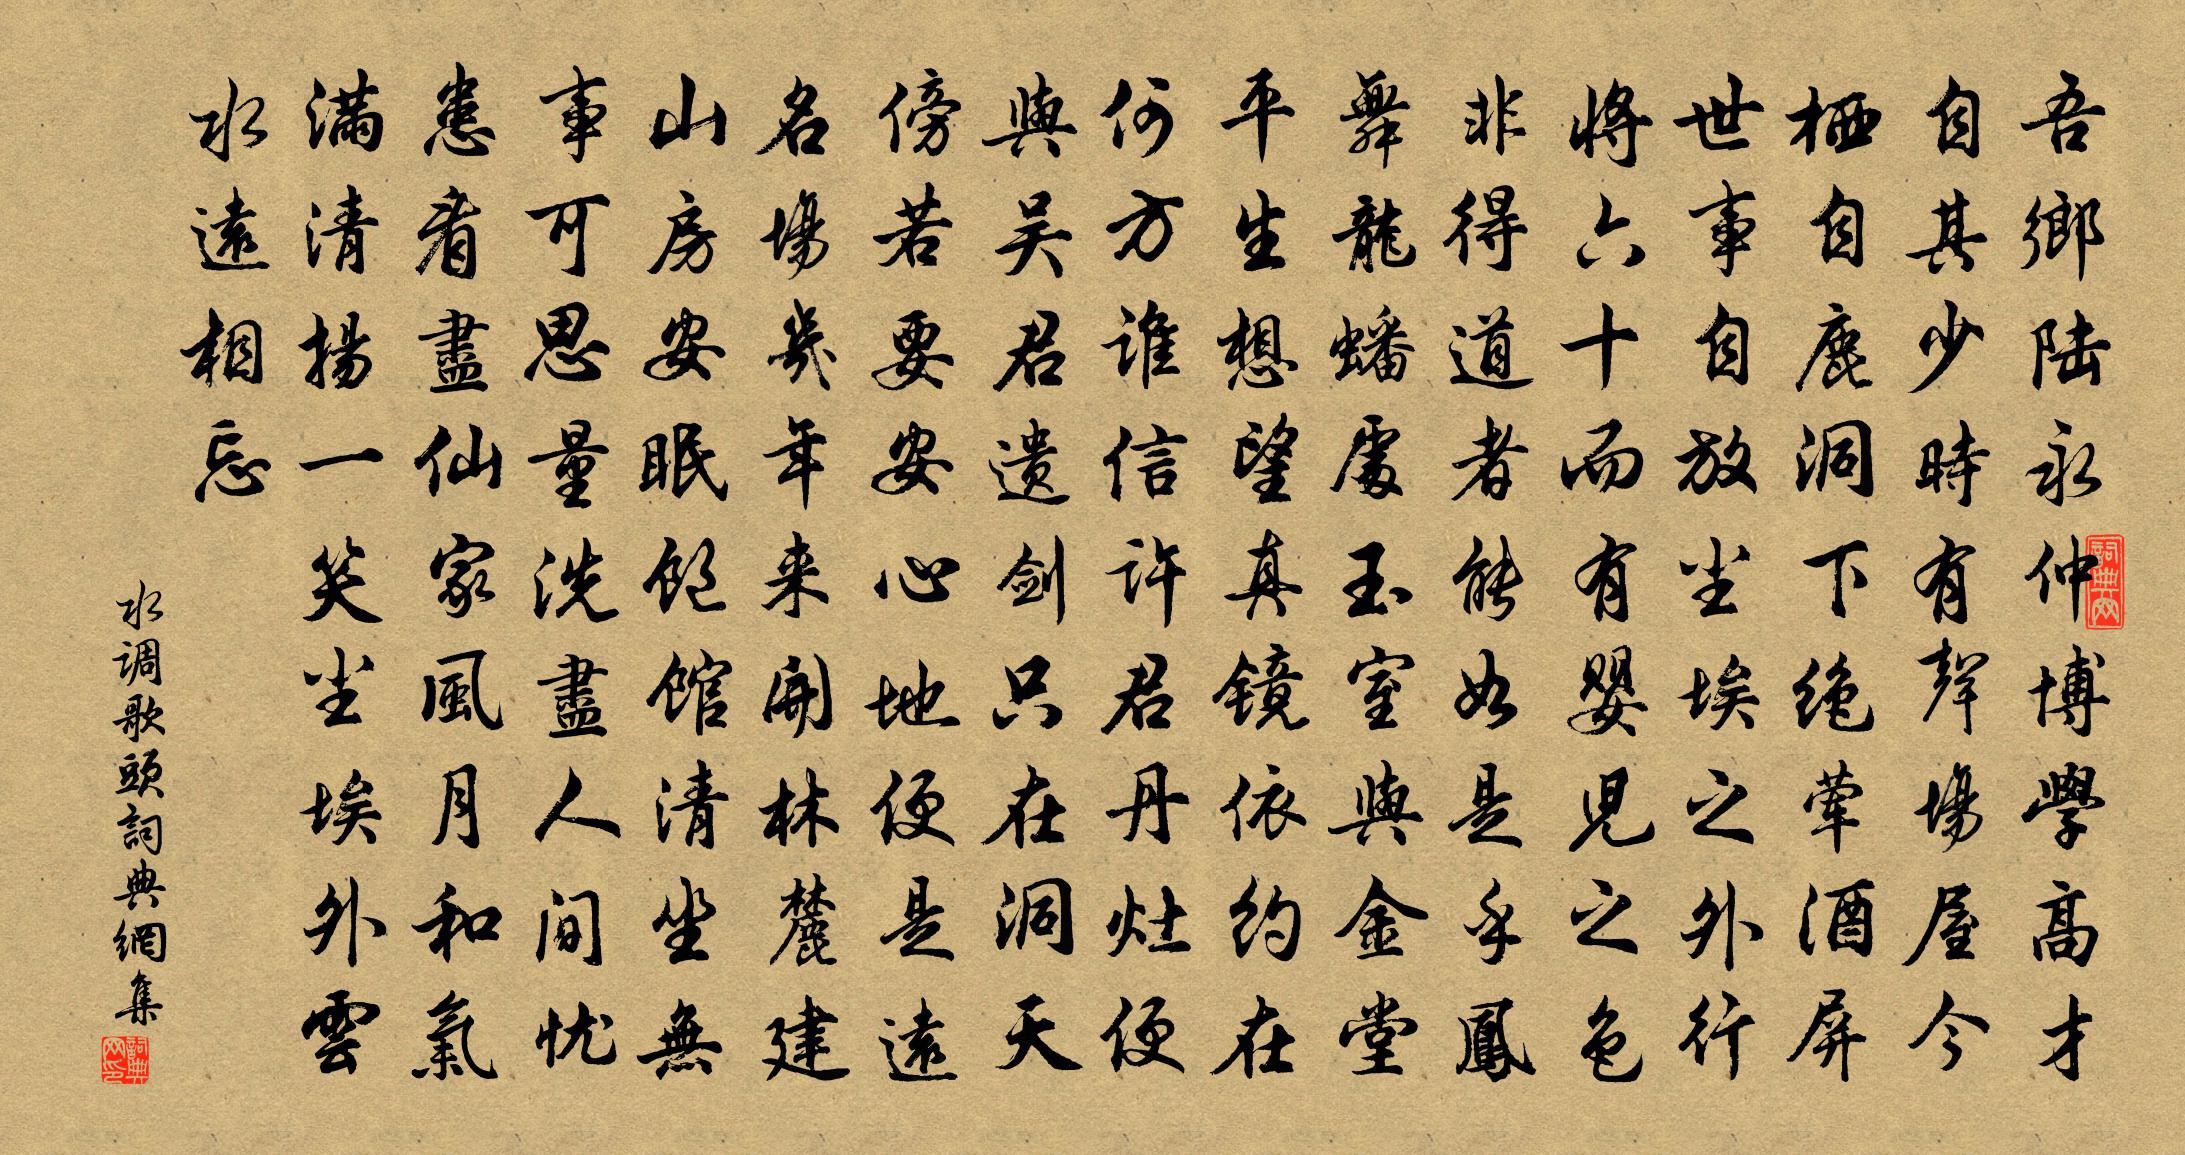 吾鄉陆永仲博學高才
自其少時有聲場屋今
栖自白鹿洞下绝荤酒屏
世事自放尘埃之外行
將六十而有婴児之色
非得道者能如是乎鳳
舞龍蟠處玉室與金堂
平生想望真镜依约在
何方谁信许君丹灶便
與吴君遗剑只在洞天
傍若要安心地便是遠
名場幾年来開林麓建
山房安眠饱馆清坐無
事可思量洗盡人间忧
患看盡仙家風月和氣
满清揚一笑尘埃外雲
水遠相忘
水调歌頭詞典網集
詞典网
詞典网印